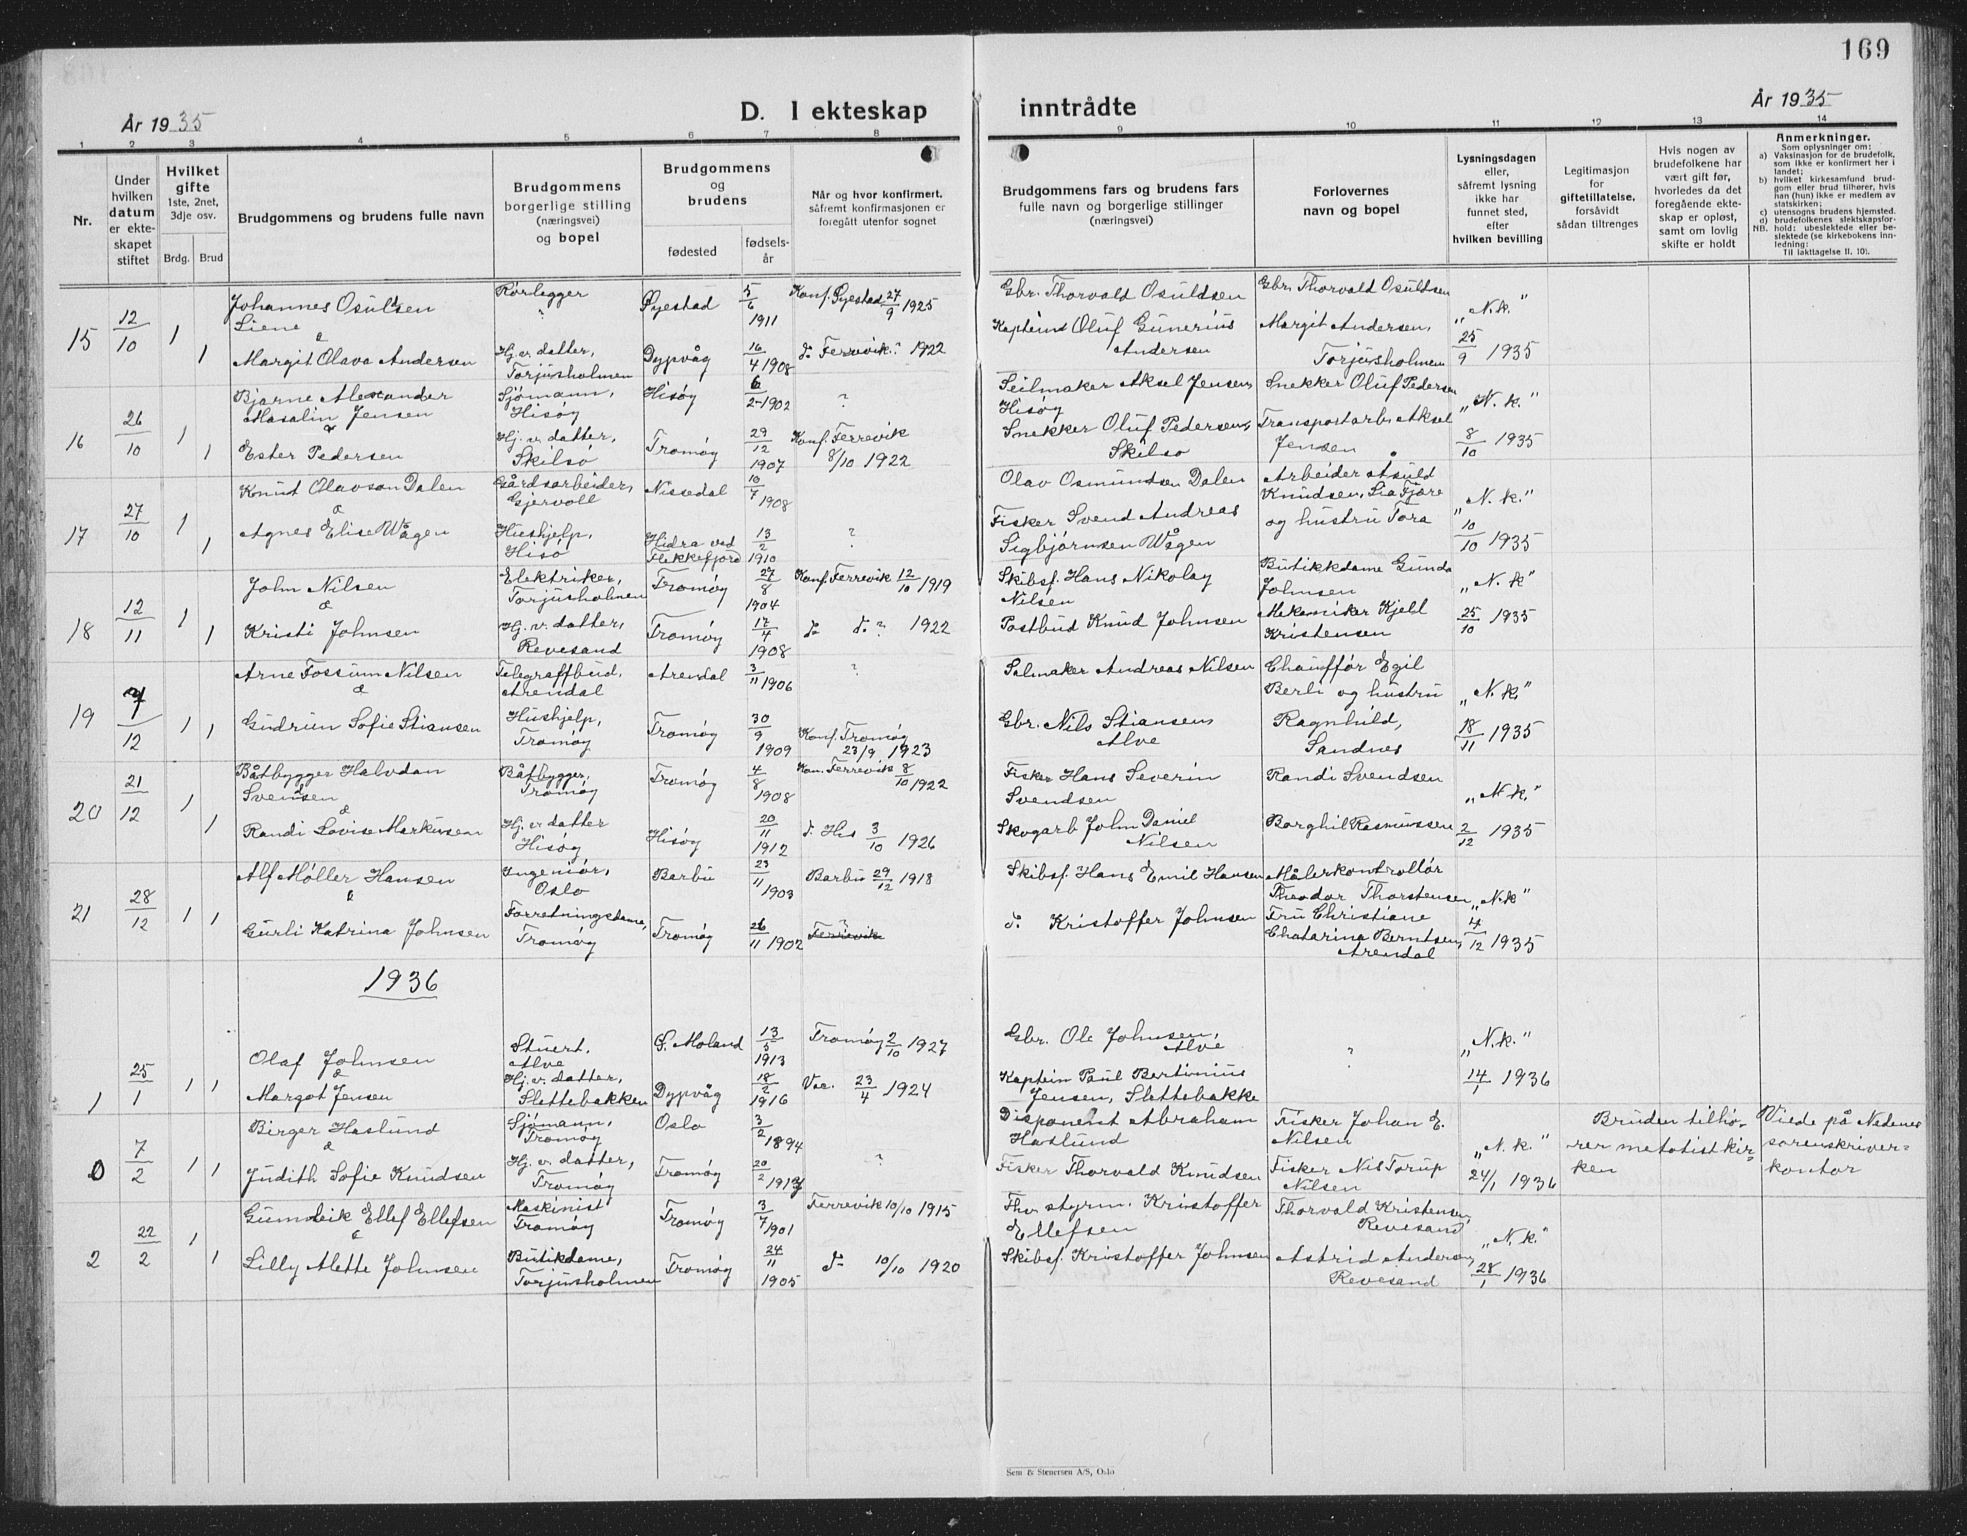 169
År 1935
D. I ekteskap inntrådte
År 1935
1 2 3 4 5 6 7 8 9 10 11 12 13 14
Nr.
Under hvilken datum er ekteskapet stiftet
Hvilket gifte 1ste, 2net, 3dje osv.
Brdg. Brud
Brudgommens og brudens fulle navn
Brudgommens borgerlige stilling (næringsvei) og bopel
Brudgommens og brudens
fødested
fødselsår
Når og hvor konfirmert, såfremt konfirmasjonen er foregått utenfor sognet
Brudgommens fars og brudens fars fulle navn og borgerlige stillinger (næringsvei)
Forlovernes navn og bopel
Lysningsdagen eller, såfremt lysning ikke har funnet sted, efter hvilken bevilling
Legitimasjon for giftetillatelse, forsåvidt sådan tiltrenges
Hvis nogen av brudefolkene har vært gift før, hvorledes da det foregående ekteskap er opløst, samt om lovlig skifte er holdt
Anmerkninger.
Som oplysninger om:
a) Vaksinasjon for de brudefolk, som ikke er konfirmert her i landet;
b) hvilket kirkesamfund brudgom eller brud tilhører, hvis han (hun) ikke er medlem av statskirken;
c) utensogns brudens hjemsted.
d) brudefolkenes slektskapsforhold: ubeslektede eller beslektede (se kirkebokens innledning:
NB.
Til iakttagelse II. 10).
15 12/10 1 Johannes Osuldsen Liene Rørlegger " Øyestad 5/6 1911 Konf. Øyestad 27/9 1925 Gbr. Thorvald Osuldsen Gbr. Thorvald Osuldsen "N.k."
& 1 Margit Olava Andersen Hj. v. datter, Torjusholmen Dypvåg 16/4 1908 do Færvik ? 1922 Kaptein Oluf Gunerius Andersen Margit Andersen, Torjusholmen 25/9 1935
16 26/10 1 Bjarne Alexander Masalin Jensen Sjømann, Hisøy Hisøy 6/2 1902 ? Seilmaker Aksel Jensen, Hisøy Snekker Oluf Pedersen "N.k."
& 1 Ester Pedersen Hj. v. datter, Skilsø Tromøy 29/12 1907 Konf. Færvik 8/10 1922 Snekker Oluf Pedersen, Skilsø Transportarb. Aksel Jensen 8/10 1935
17 27/10 1 Knut Olavson Dalen Gårdsarbeider, Gjervoll Nissedal 10/7 1908 Olav Osmundsen Dalen Arbeider Asuld Knudsen, Lia Fjære "N.k."
& 1 Agnes Elise Vågen Hushjelp, Hisø Hidra ved Flekkefjord 13/2 1910 ? Fisker Svend Andreas Sigbjørnsen Vågen og hustru Tora 10/10 1935
18 12/11 1 John Nilsen Elektriker, Torjusholmen Tromøy 27/8 1904 Konf. Færvik 12/10 1919 Skibsf. Hans Nikolay Nilsen Butikkdame Gunda Johnsen "N.k"
& 1 Kristi Johnsen Hj. v. datter, Revesand Tromøy 17/4 1908 do do ? 1922 Postbud Knud Johnsen Mekaniker Kjell Kristensen 25/10 1935
19 7/12 1 Arne Fossum Nilsen Telegraffbud, Arendal Arendal 3/11 1906 ? Salmaker Andreas Nilsen Chauffør Egil Berli og hustru "N.k."
& 1 Gudrun Sofie Stiansen Hushjelp, Tromøy Tromøy 30/9 1909 Konf. Tromøy 23/9 1923 Gbr. Nils Stiansen, Alve Ragnhild, Sandnes 18/11 1935
20 21/12 1 Båtbygger Halvdan Svendsen Båtbygger, Tromøy Tromøy 4/8 1908 Kon. Færvik 8/10 1922 Fisker Hans Severin Svendsen Randi Svendsen "N.k."
& 1 Randi Lovise Markussen Hj. v. datter Hisøy Hisøy 20/11 1912 do His 3/10 1926 Skogarb John Daniel Nilsen Borghil Rasmussen 2/12 1935
21 28/12 1 Alf Møller Hansen Ingeniør, Oslo Barbu 23/11 1903 Barbu 29/12 1918 Skibsf. Hans Emil Hansen Målerkontrollør Theodor Thorstensen "N.k"
& 1 Gurli Katrina Johnsen Forretningsdame, Tromøy Tromøy 26/11 1902 ? Færvik do Kristoffer Johnsen Fru Christiane Chatarina Berntsen, Arendal 4/12 1935
1936
1 25/1 1 Olaf Johnsen Stuert, Alve S. Moland 13/5 1913 Tromøy 2/10 1927 Gbr. Ole Johnsen, Alve ? "N.k."
& 1 Margot Jensen Hj. v. datter, Slettebakken Dypvåg 18/2 1916 Vac. 23/4 1924 Kaptein Paul Bertinius Jensen, Slettebakke 14/1 1936
0 7/2 1 Birger Haslund Sjømann, Tromøy Oslo 3/2 1894 Disponent Abraham Haslund Fisker Johan E. Nilsen "N.k." Bruden tilhører metotistkirken Viede på Nedenes sorenskriverkontor
& 1 Judith Sofie Knudsen Hj. v. datter, Tromøy Tromøy 20/2 ? Fisker Thorvald Knudsen Fisker Nils Torup Nilsen 24/1 1936
2 22/2 1 Gunleik Ellef Ellefsen Maskinist Tromøy Tromøy 3/7 1901 Færvik 10/10 1915 Fhv. styrm. Kristoffer Ellefsen Thorvald Kristensen, Revesand "N.k."
& 1 Lilly Alette Johnsen Butikdame, Torjusholmen Tromøy 24/11 1905 do 10/10 1920 Skibsf. Kristoffer Johnsen Astrid Andersen, Revesand 28/1 1936
Sem & Stenersen A/S, Oslo